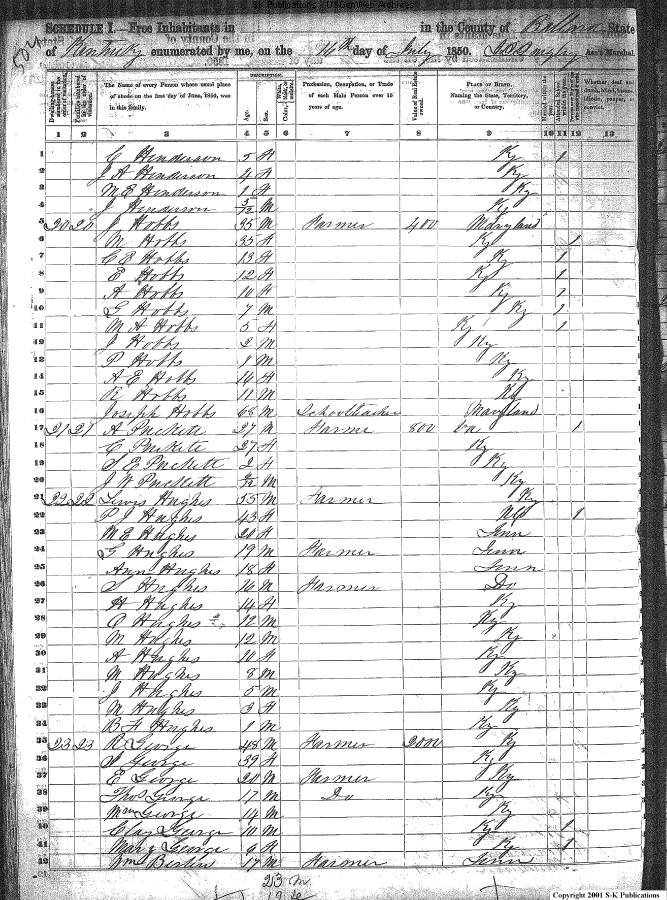 SK Publications - USGenWeb Archives
SCHEDULE I.—Free Inhabitants in in the County of Ballard State
of Kentucky enumerated by me, on the 16th day of July 1850. Ass't Marshal.
DESCRIPTION.
Dwelling-houses numbered in the order of visitation. Families numbered in the order of visitation. The Name of every Person whose usual place of abode on the first day of June, 1850, was in this family. Age. Sex. Color, Profession, Occupation, or Trade of each Male Person over 15 years of age. Value of Real Estate owned. PLACE OF BIRTH. Naming the State, Territory, or Country. Whether deaf and dumb, blind, insane, idiotic, pauper, or convict.
1 2 3 4 5 6 7 8 9 10 11 12 13
1 C Henderson 5 F Ky 1
2 J A Henderson 4 F Ky
3 M E Henderson 1 F Ky
4 J Henderson 5/12 M Ky
5 20 20 J Hobbs 35 M Farmer 400 Maryland
6 M Hobbs 35 F Ky 1
7 C E Hobbs 13 F Ky 1
8 E Hobbs 12 F Ky 1
9 A Hobbs 10 F Ky 1
10 G Hobbs 7 M Ky 1
11 M A Hobbs 5 F Ky 1
12 J Hobbs 2 M Ky
13 P Hobbs 1 M Ky
14 A E Hobbs 16 F Ky
15 R Hobbs 11 M Ky
16 Joseph Hobbs 68 M Schoolteacher Maryland
17 21 21 A Puckett 27 M Farmer 800 Va 1
18 C Puckett 27 F Ky
19 S E Puckett 2 F Ky
20 J W Puckett M Ky
21 22 22 Lewis Hughes 55 M Farmer Ky
22 P J Hughes 43 F 1
23 M E Hughes 20 F Tenn
24 G Hughes 19 M Farmer Tenn
25 Ann Hughes 18 F Tenn
26 S Hughes 16 M Farmer Do
27 H Hughes 14 F Ky
28 Hughes 12 M Ky
29 M Hughes 12 M Ky
30 A Hughes 10 F Ky
31 M Hughes 8 M Ky
32 J Hughes 5 M Ky
33 M Hughes 3 F Ky
34 B F Hughes 1 M Ky
35 23 23 R George 48 M Farmer 2000 Ky
36 S George 39 F Ky
37 E George 20 M Farmer Ky
38 Thos George 17 M Do Ky
39 Wm George 14 M Ky
40 Clay George 10 M Ky 1
41 Mary George 9 F Ky 1
42 Wm 17 M Farmer Tenn
23 m
19 fe
Copyright 2001 S-K Publications